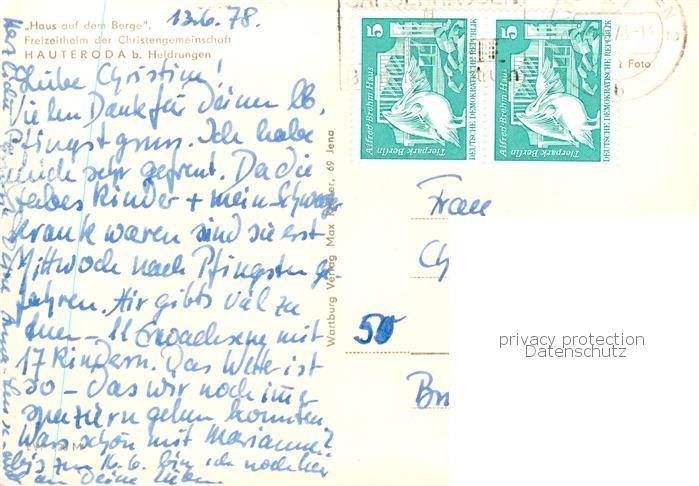 13.6.78.
„Haus auf dem Berge",
Freizeitheim der Christengemeinschaft
HAUTERODA b. Heldrungen
Liebe Christine!
Vielen Dank für Deinen lb.
Pfingstgruss. Ich habe
mich sehr gefreut. Da die
Kinder + mein Schwager
krank waren sind sie erst
Mittwoch nach Pfingsten ge-
fahren. Hir gibts viel zu
tun – 11 Erwachsene mit
17 Kindern. Das Wetter ist
so – das wir noch
spaziern gehen konnten.
Wars schön mit Marianne?
bis zum 16.6. bin ich noch hier
an Deine Lieben
Herzliche
Wartburg Verlag Max Keßler, 69 Jena
5
Alfred-Brehm-Haus
Tierpark Berlin
DEUTSCHE DEMOKRATISCHE REPUBLIK
5
Alfred-Brehm-Haus
Tierpark Berlin
DEUTSCHE DEMOKRATISCHE REPUBLIK
Foto
Frau
Ch
50
Br
privacy protection
Datenschutz